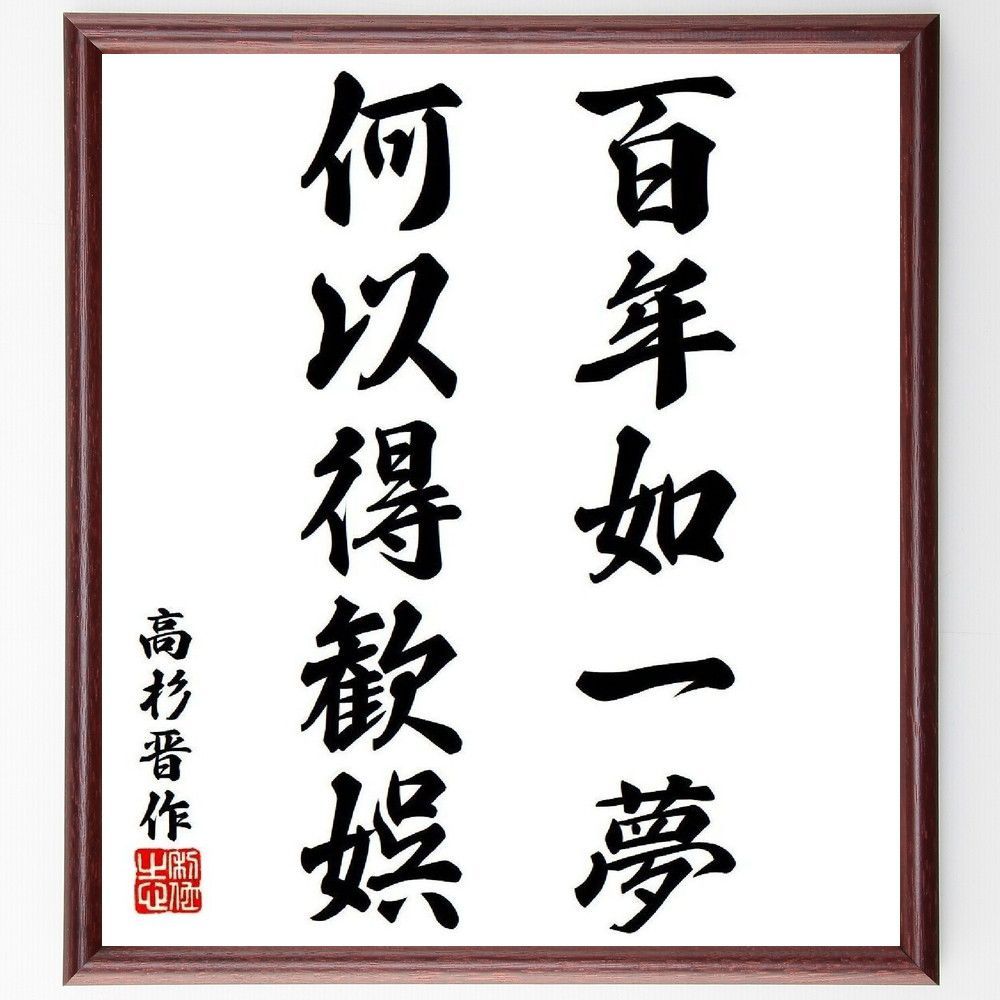 百年如一夢
何以得歓娯
高杉晋作